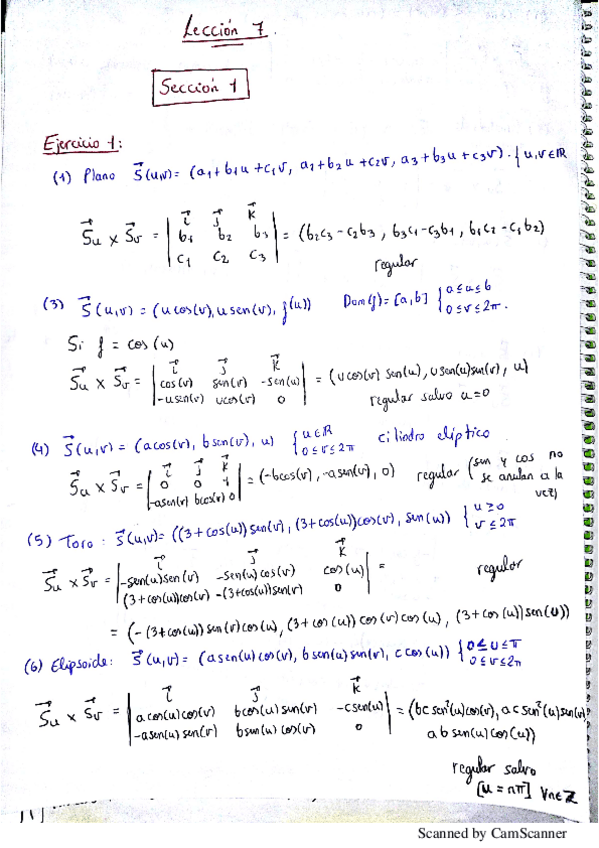 Lección 7.
Sección 1
Ejercicio 1:
(1) Plano S⃗(u,v) = (a1+b1u+c1v, a2+b2u+c2v, a3+b3u+c3v). { u,v∈ℝ
S⃗u × S⃗v = | i⃗ j⃗ k⃗ | = (b2c3-c2b3, b3c1-c3b1, b1c2-c1b2)
b1 b2 b3
c1 c2 c3
regular
(3) S⃗(u,v) = (u cos(v), u sen(v), f(u)) Dom(f) = [a,b] { a≤u≤b
0≤v≤2π.
Si f = cos(u)
S⃗u × S⃗v = | i⃗ j⃗ k⃗ | = (u cos(v) sen(u), u sen(u) sen(v), u)
cos(v) sen(v) -sen(u)
-u sen(v) u cos(v) 0
regular salvo u=0
(4) S⃗(u,v) = (a cos(v), b sen(v), u) { u∈ℝ cilindro elíptico
0≤v≤2π
S⃗u × S⃗v = | i⃗ j⃗ k⃗ | = (-b cos(v), -a sen(v), 0) regular (sen y cos no
0 0 1
se anulan a la
-a sen(v) b cos(v) 0
vez)
(5) Toro: S⃗(u,v) = ((3+cos(u)) sen(v), (3+cos(u)) cos(v), sen(u)) { u≥0
v≤2π
S⃗u × S⃗v = | i⃗ j⃗ k⃗ | =
-sen(u) sen(v) -sen(u) cos(v) cos(u)
(3+cos(u)) cos(v) -(3+cos(u)) sen(v) 0
regular
= (-(3+cos(u)) sen(v) cos(u), (3+cos(u)) cos(v) cos(u), (3+cos(u)) sen(u))
(6) Elipsoide: S⃗(u,v) = (a sen(u) cos(v), b sen(u) sen(v), c cos(u)) { 0≤u≤π
0≤v≤2π
S⃗u × S⃗v = | i⃗ j⃗ k⃗ | = (bc sen²(u) cos(v), ac sen²(u) sen(v),
a cos(u) cos(v) b cos(u) sen(v) -c sen(u)
-a sen(u) sen(v) b sen(u) cos(v) 0
ab sen(u) cos(u))
regular salvo
[u = nπ] ∀n∈ℤ
Scanned by CamScanner